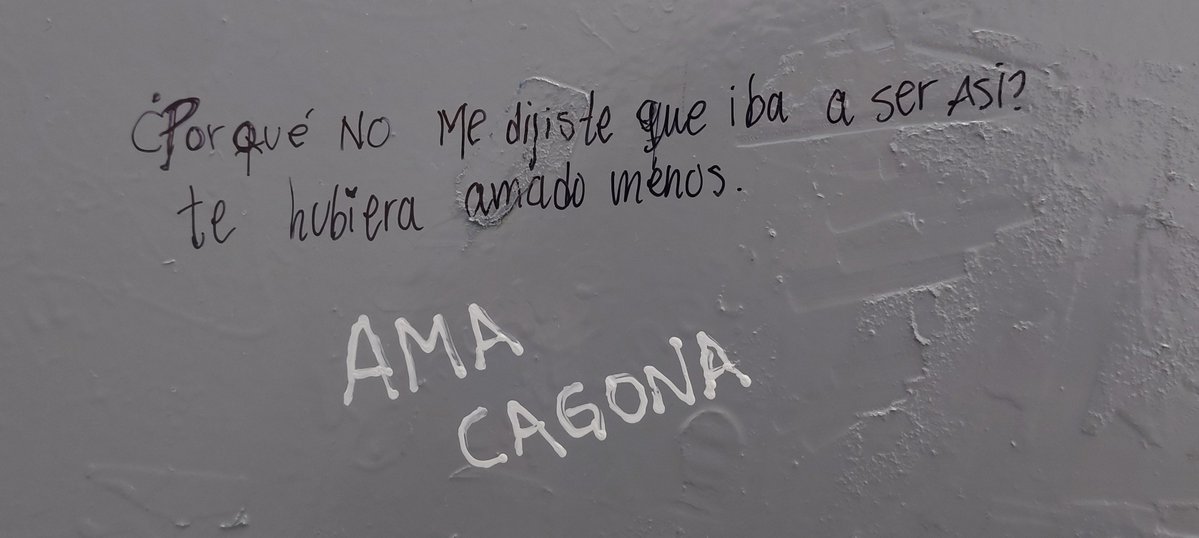 ¿Por qué NO Me dijiste que iba a ser Así?
te hubiera amado menos.
AMA
CAGONA